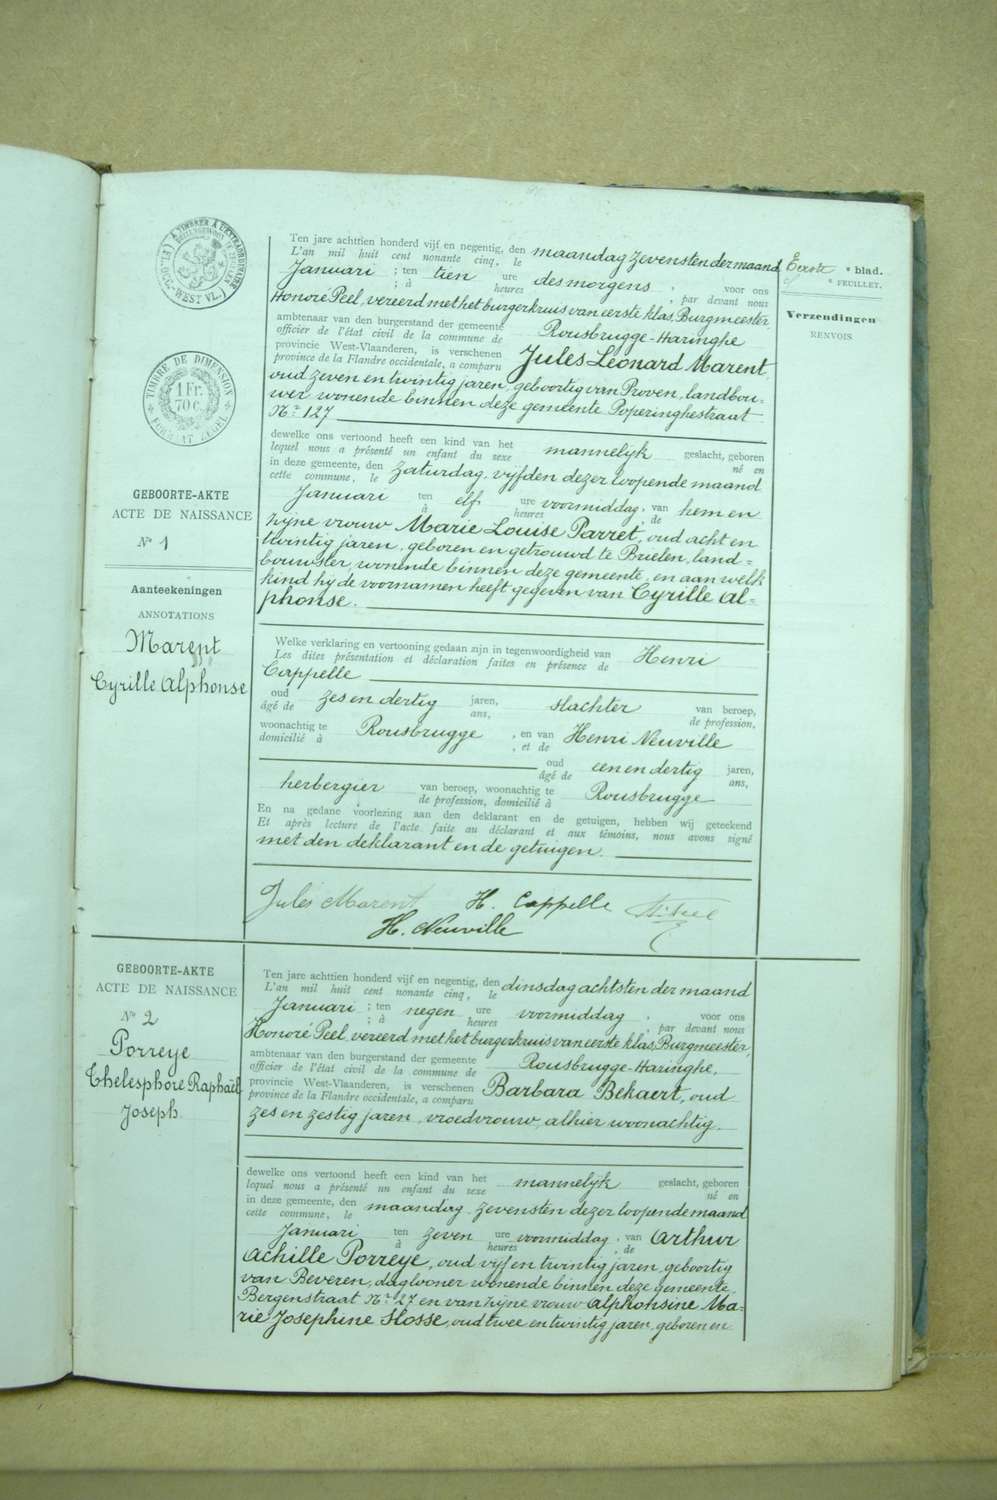 A TIMBRER A L'EXTRAORDINAIRE
(LEI-OOG-WEST VL.)
TIMBRE DE DIMENSION
1 Fr.
70 C.
FORMAAT ZEGEL
Eerste e blad.
e FEUILLET.
Verzendingen
RENVOIS
GEBOORTE-AKTE
ACTE DE NAISSANCE
No 1
Aanteekeningen
ANNOTATIONS
Marent
Cyrille Alphonse
Ten jare achttien honderd vijf en negentig, den maandag zevensten der maand
L'an mil huit cent nonante cinq, le
Januari ; ten tien ure des morgens , voor ons
; à heures , par devant nous
Honoré Peel, vereerd met het burgerkruis van eerste klas, Burgmeester,
ambtenaar van den burgerstand der gemeente Rousbrugge-Haringhe
officier de l'état civil de la commune de
provincie West-Vlaanderen, is verschenen Jules Léonard Marent,
province de la Flandre occidentale, a comparu
oud zeven en twintig jaren, geboortig van Proven, landbou-
wer wonende binnen deze gemeente Poperinghestraat
No 127
dewelke ons vertoond heeft een kind van het mannelyk geslacht, geboren
lequel nous a présenté un enfant du sexe né en
in deze gemeente, den zaturdag, vyfden dezer loopende maand
cette commune, le
Januari ten elf ure voormiddag, van hem en
à heures , de
zyne vrouw Marie Louise Parret, oud acht en
twintig jaren, geboren en getrouwd te Brielen, land=
bouwster, wonende binnen deze gemeente, en aan welk
kind hy de voornamen heeft gegeven van Cyrille Al=
phonse.
Welke verklaring en vertooning gedaan zijn in tegenwoordigheid van Henri
Les dites présentation et déclaration faites en présence de
Cappelle
oud zes en dertig jaren, slachter van beroep,
âgé de ans, de profession,
woonachtig te Rousbrugge , en van Henri Neuville
domicilié à , et de
oud een en dertig jaren,
âgé de ans,
herbergier van beroep, woonachtig te Rousbrugge
de profession, domicilié à
En na gedane voorlezing aan den deklarant en de getuigen, hebben wij geteekend
Et après lecture de l'acte faite au déclarant et aux témoins, nous avons signé
met den deklarant en de getuigen.
Jules Marent H. Cappelle H. Peel
H. Neuville
GEBOORTE-AKTE
ACTE DE NAISSANCE
No 2
Porreye
Thelesphore Raphaël
Joseph
Ten jare achttien honderd vijf en negentig, den dinsdag achtsten der maand
L'an mil huit cent nonante cinq, le
Januari ; ten negen ure voormiddag , voor ons
; à heures , par devant nous
Honoré Peel, vereerd met het burgerkruis van eerste klas, Burgmeester,
ambtenaar van den burgerstand der gemeente Rousbrugge-Haringhe,
officier de l'état civil de la commune de
provincie West-Vlaanderen, is verschenen Barbara Bekaert, oud
province de la Flandre occidentale, a comparu
zes en zestig jaren, vroedvrouw, alhier woonachtig.
dewelke ons vertoond heeft een kind van het mannelyk geslacht, geboren
lequel nous a présenté un enfant du sexe né en
in deze gemeente, den maandag, zevensten dezer loopende maand
cette commune, le
Januari ten zeven ure voormiddag, van Arthur
à heures , de
Achille Porreye, oud vyf en twintig jaren, geboortig
van Beveren, daglooner wonende binnen deze gemeente
Bergenstraat No 27 en van zyne vrouw Alphonsine Ma-
rie Josephine Slosse, oud twee en twintig jaren, geboren en